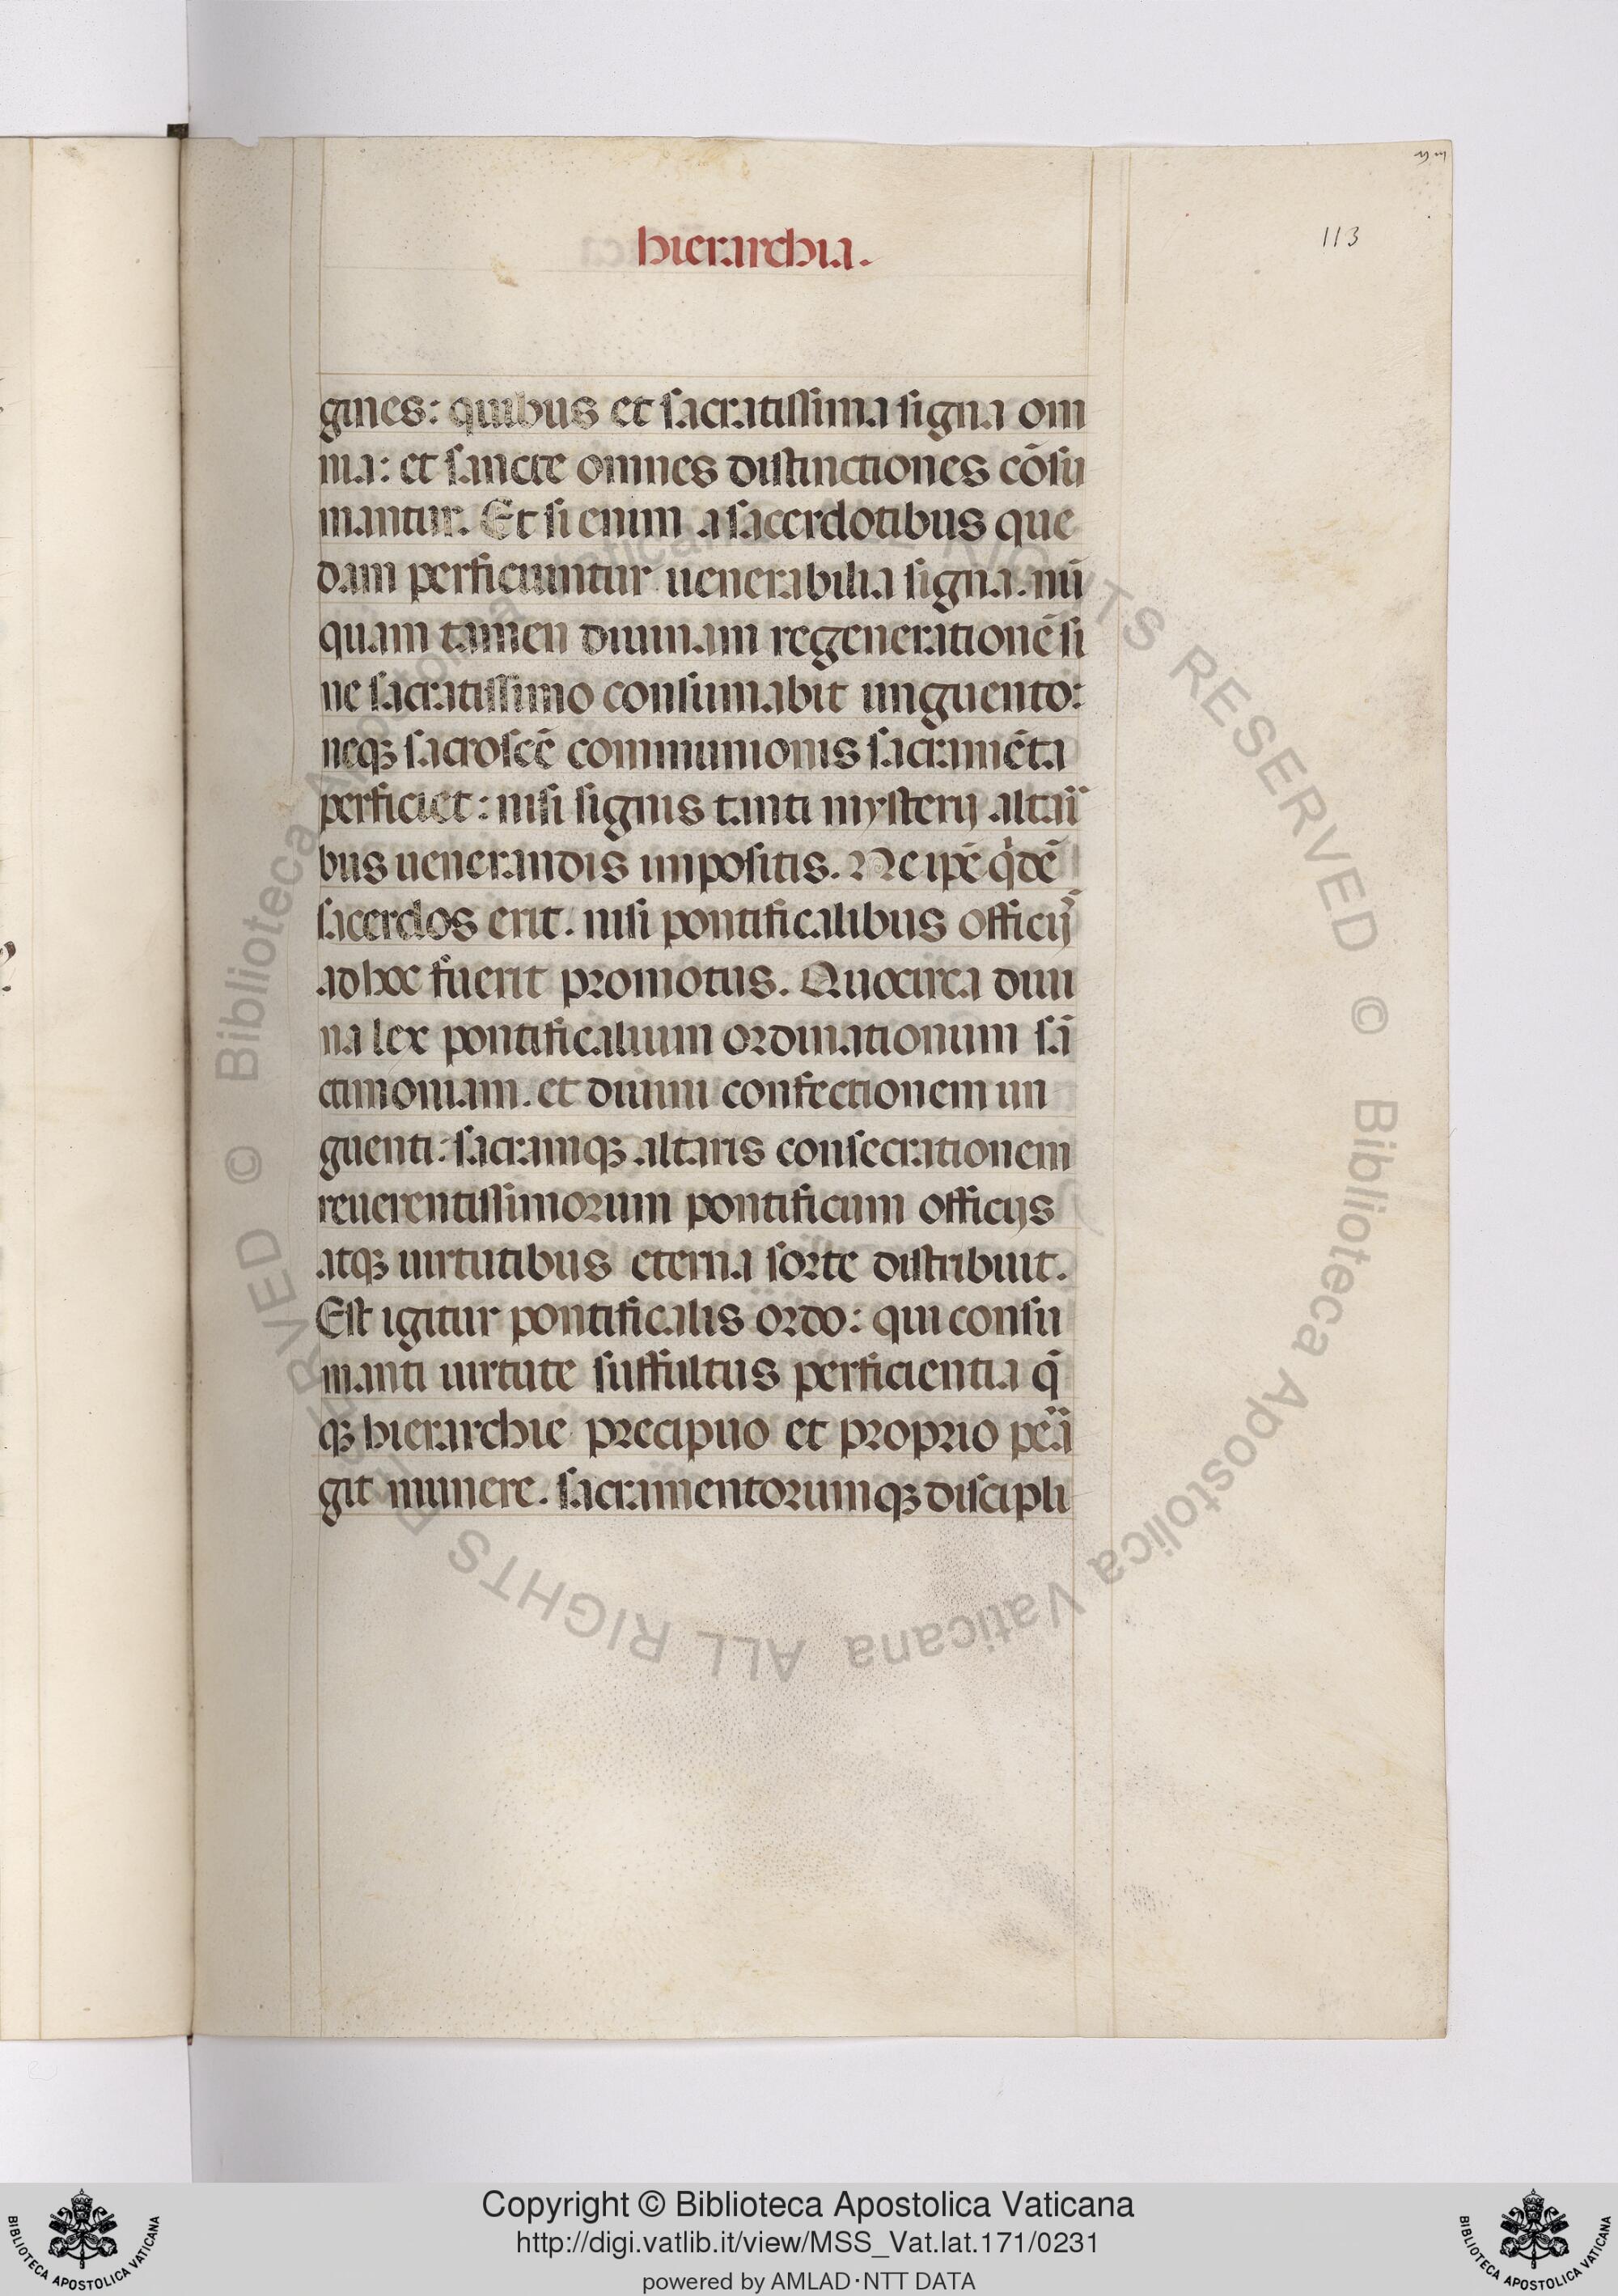 113
hierarchia.
gines: quibus et sacratissima signa om
nia: et sancte omnes distinctiones cōsu
mantur. Et si enim a sacerdotibus que
dam perficiuntur uenerabilia signa. nū
quam tamen diuinam regenerationē si
ne sacratissimo consumabit unguento:
neqꝫ sacroscē communionis sacramēta
perficiet: nisi signis tanti mysterij altari
bus uenerandis impositis. Ne ipē qͥdē
sacerdos erit. nisi pontificalibus officijˢ
ad hoc fuerit promotus. Quocirca diui
na lex pontificalium ordinationum sā
ctimoniam. et diuini confectionem un
guenti: sacramqꝫ altaris consecrationem
reuerentissimorum pontificum officijs
atqꝫ uirtutibus eterna sorte distribuit.
Est igitur pontificalis ordo: qui consu
manti uirtute suffultus perficientia q̄
qꝫ hierarchie precipuo et proprio
git munere. sacramentorumqꝫ discipli
© Biblioteca Apostolica Vaticana ALL RIGHTS RESERVED
Copyright © Biblioteca Apostolica Vaticana
http://digi.vatlib.it/view/MSS_Vat.lat.171/0231
powered by AMLAD·NTT DATA
BIBLIOTECA APOSTOLICA VATICANA
BIBLIOTECA APOSTOLICA VATICANA